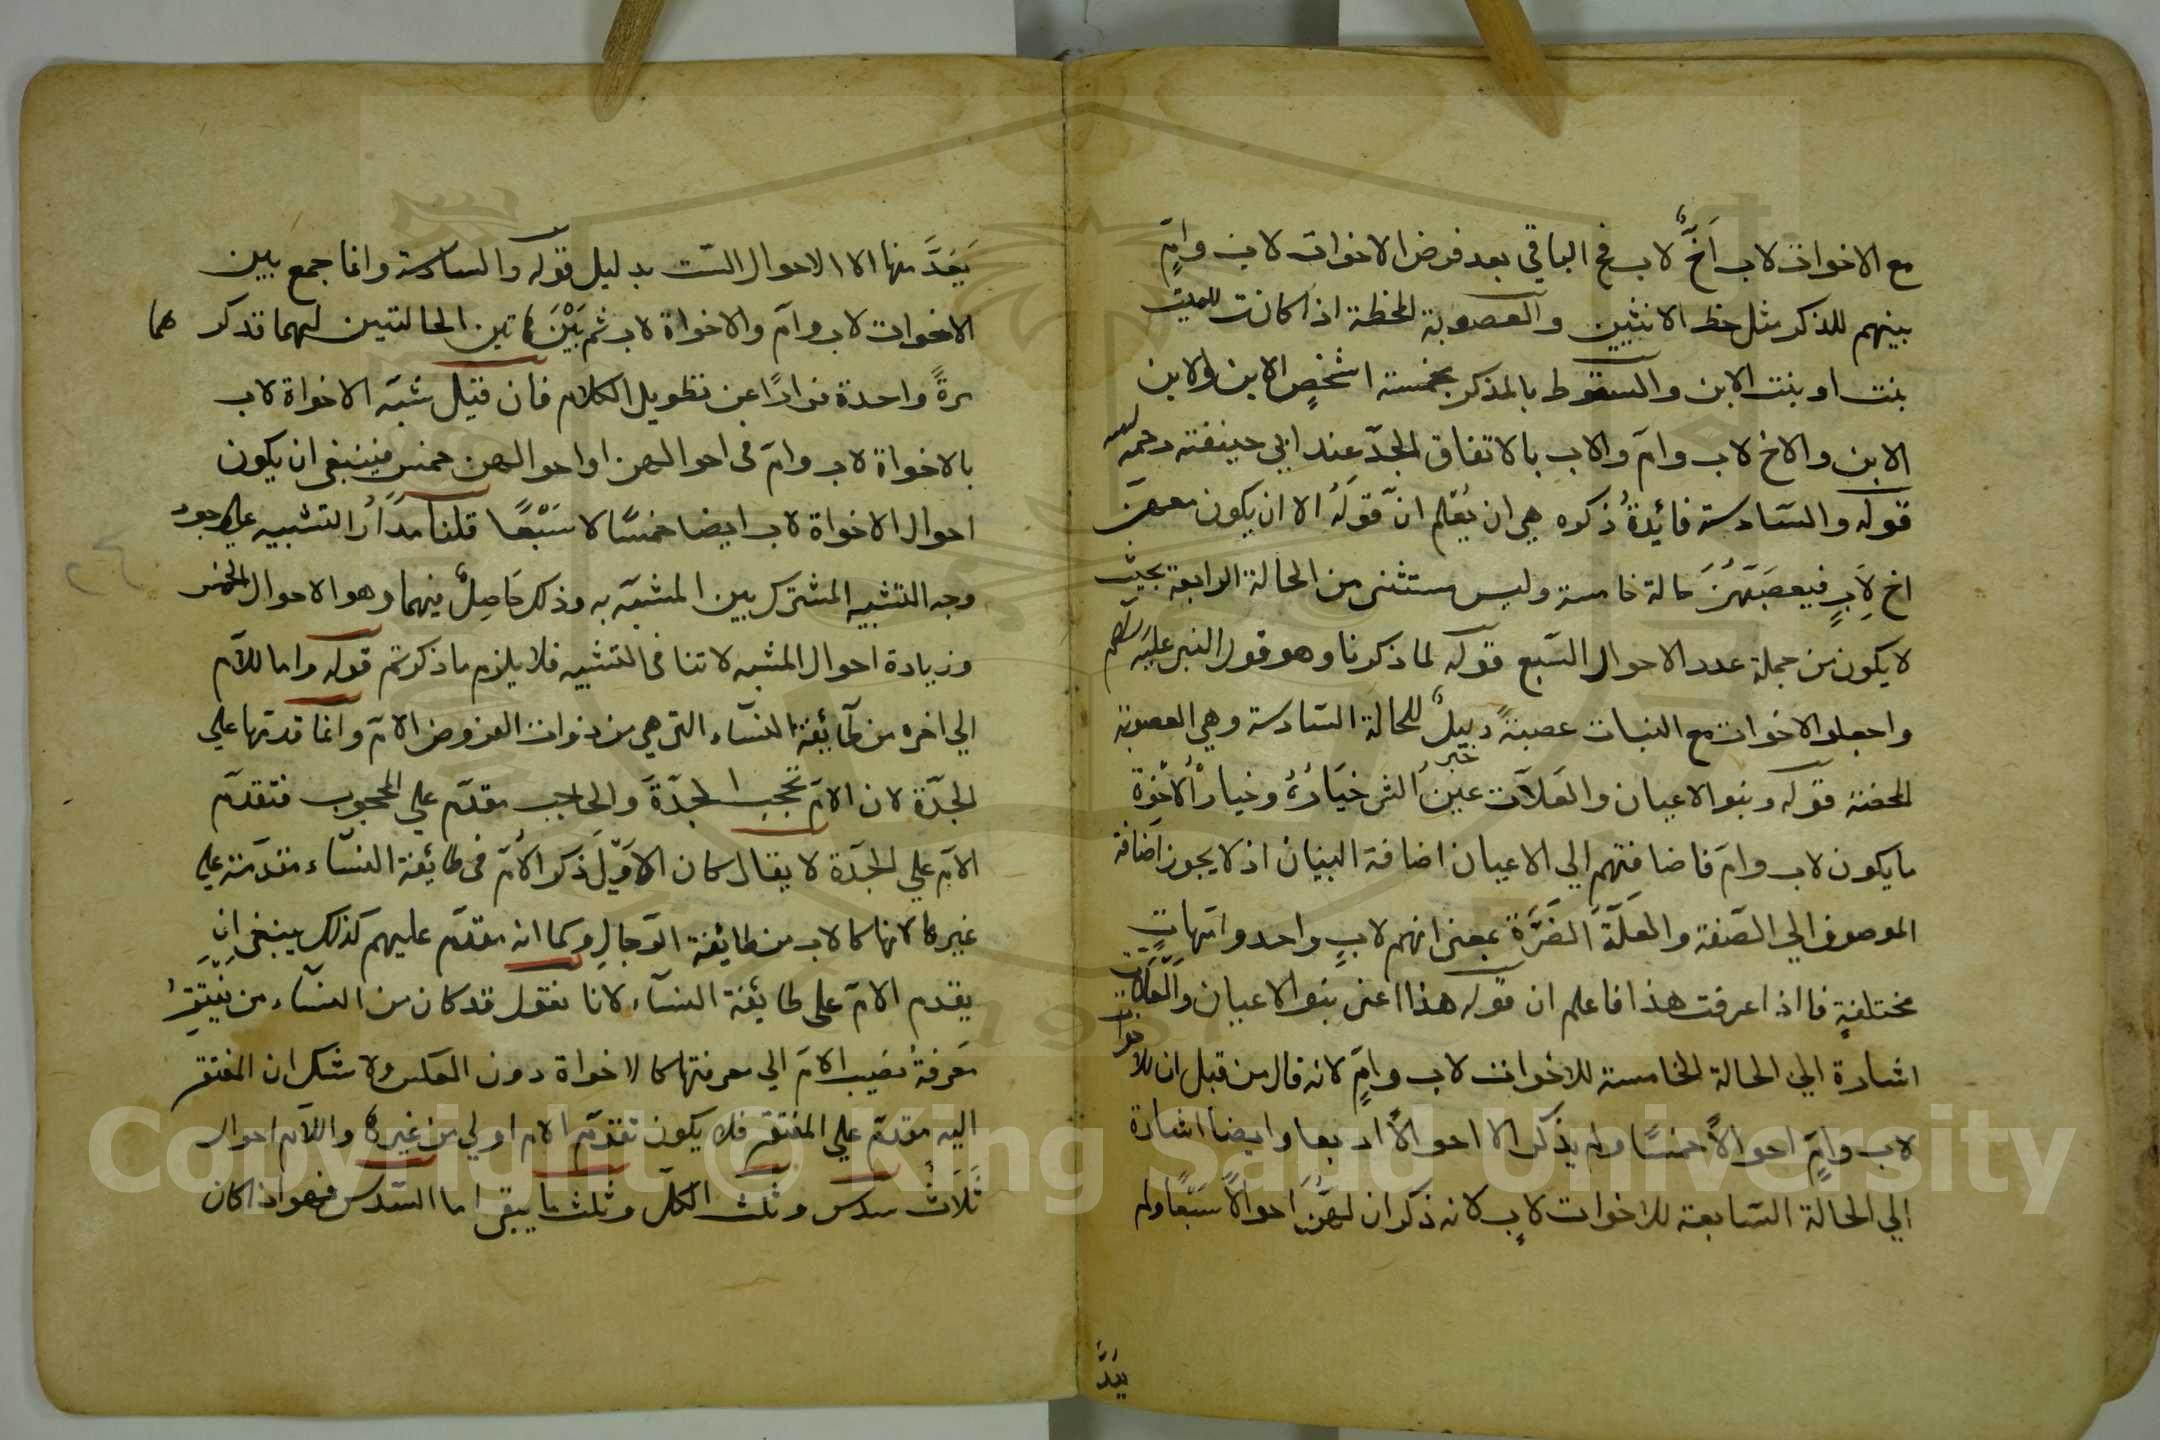 مع الاخوات لاب اَخٌ لاب فح الباقي بعد فرض الاخوات لاب وامٍّ
بينهم للذكر مثل حظ الانثيين والعصوبة المحظة اذا كانت للميت
بنت او بنت الابن والسقوط بالمذكر بخمسة اشخصٍ الابن وابن
الابن والاخ لاب وامّ والاب بالاتفاق الجدّ عند ابي حينفته رحمه الله
قوله والسّادسة فائدةُ ذكره هي ان يُعْلم انّ قولَهُ الا ان يكون معهنّ
اخ لِاَبٍ فيعصبَهُنَّ حالة خامسة وليس مستثنى من الحالة الرابعة بحيث
لا يكون من جملة عدد الاحوال السّبع قوله لما ذكرنا وهو قول النبي عليه السلام
واجعلوا الاخوات مع البنات عصبةً دليلٌ للحالة السّادسة وهي العصوبة
المحضة قوله وبنوا الاعيان والعَلّات عينُ الشئ خيَارُهُ وخيارُ الاُخْوَة
ما يكون لاب وامّ فاضافتهم الي الاعيان اضافة البيان اذ لا يجوز اضافة
الموصوف الي الصّفة والعَلَّةَ الضَّرَّة بمعنى انهم لابٍ واحد وامّهاتٍ
مختلفةٍ فااذا عرفت هذا فاعلم ان قوله هذا اعنى بنوا الاعيان والعَلّات
اشارة الي الحالة الخامسة للاخوات لاب وامٍّ لانه قال من قبل ان للاخوات
لاب وامٍّ احوالاً خمسًا ولم يذكر الا احوالاً اربعا وايضا اشارة
الي الحالة السّابعة للاخوات لابٍ لانه ذكر ان لهُنَّ احوالاً سَبْعًا ولم
يَعُدَّ
يَعُدَّ منها الا الاحوال الستّ بدليل قوله والسادسة وانما جمع بين
الاخوات لاب وامّ والاخواة لاب ثم بَيَّنَ هاتين الحالتين لهما تذكر هما
مرةً واحدة فرارًا عن تطويل الكلام فان قيل شبّه الاخواة لاب
بالاخواة لاب وامّ فى احوالهن واحوالهن خمس فينبغى ان يكون
احوال الاخواة لاب ايضا خمسًا لا سَبْعًا قلنا مدَارُ التشبيه على وجود
وجه التشبيه المشترك بين المشبّه به وذلك حَاصِلٌ فيهما وهو الاحوال الخمس
وزيادة احوال المشبه لا تنافى التشبيه فلا يلزم ما ذكرتم قوله واما للامّ
الي اخره من طآئفة النسآء التى هي من ذوات الفروض الامّ وانّما قدّمها على
الجدّة لان الامّ تحجب الجدّةَ والحاجب مقدّم علي المحجوب فتقدّم
الامّ علي الجدّة لا يقال كان الاوّلَ ذكر الاُمّ فى طائفة النسّاء متقدّمة علي
غيرها لانها كالاب من طائفة الرّجالِ وكما انه مقدّم عليهم كذلك ينبغى ان
يقدم الامّ على طائفة النسآء لانا نقول قد كان من النسآء من يَفْتَقِرُ
مَعرفةُ نصَيب الامّ الي معرفتها كالاخواة دون العكس ولا شك ان المفتقر
اليه مقدّم علي المفتقر فلا يكون تقدّم الام اولي من غيرها وللامّ احوال
ثَلاثٌ سدس وثلث الكلّ وثلث ما يبقى اما السّدس فهو اذا كان